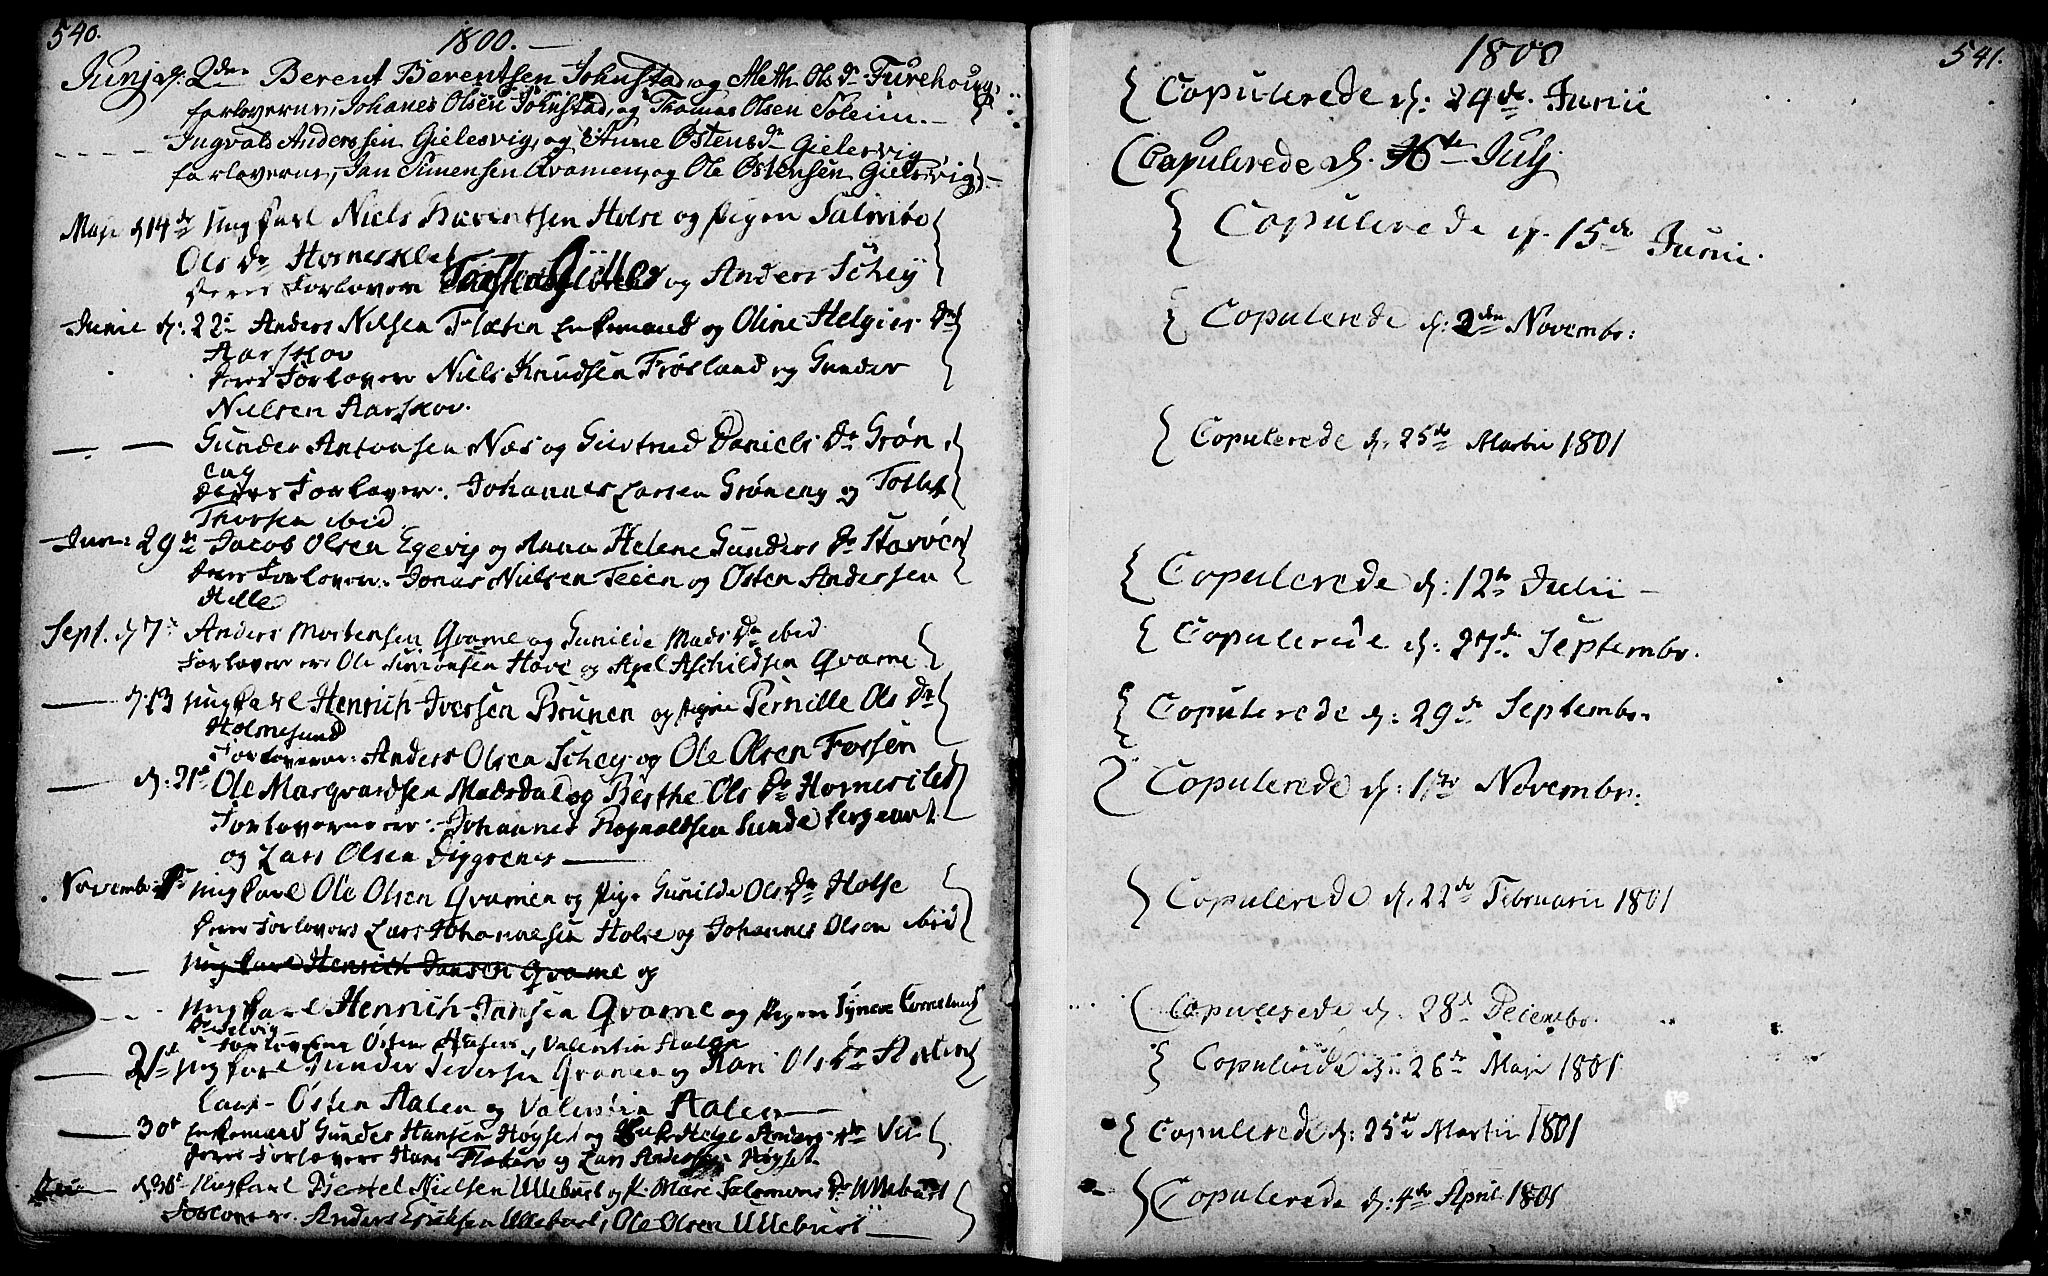 540.
1800.
Junj d: 2den Berent Berentsen Johnstad og Meth Ols Dr Furehoug
forloverne, Johanes Olsen Johnstad, og Thomas Olsen Soleim.
Ingvald Anderssen Gielesvig, og Anne Ostensdr Gielesvig
forloverne, Jan Simensen Qvamen, og Ole Ostensen Gielesvig
Maji d 14de ungkarl Niels Berentsen Holse og Pigen
Ols Dr Hornesklet
Deres Forlovere og Anders Schey
Junii d: 22 Anders Nilsen Flæten Enkemand og Oline Helgies Dr
Aarskov
Deres Forlovere Niels Knudsen Frøsland og Gunder
Nielsen Aarskov.
Gunder Antonsen Næs og Giertrud Daniels Dr Grøn
eng
Deres Forlovere. Johannes Larsen Grøneng og
Thorsen ibid
Juni 29de Jacob Olsen Egevig og Anna Helene Gunders Dr
Deres Forlovere. Jonas Nielsen Teien og Østen Andersen
Hille
Sept. d 7 Anders Mortensen Qvame og Gunilde Mads Dr ibid
Forlovere ere Ole Simonsen Hove og Axel Aschildsen Qvame
d. 13 ungkarl Henrich Iversen Brunen og pigen Pernille Ols Dr
Holmesund
Forloverne: Anders Olsen Schey og Ole Olsen Fossen
d: 21de Ole Marqvardsen Madsdal og Berthe Ols Dr Horneskled
Forloverne er: Johannes Rognaldsen Sunde Sergeant
og Lars Olsen
November ungkarl Ole Olsen Qvamen og Pige Gunilde Ols Dr Holse
Deres Forlovere Lars Johannesen Holse og Johannes Olsen ibid
ungkarl Henrich Jansen Qvame og
ungkarl Henrich Jansen Qvame og Pigen Syneve
Forloverne Østen Valentin Aalen
21de ungkarl Gunder Pedersen Qvame og Kari Ols Dr
Caut- Østen Aalen og Valentin Aalen
30te Enkemand Gunder Hansen Høyset og Helge Anders Dr
Deres Forlovere Hans og Lars Andersen Høyset
d 30te Ungkarl Bertel Nielsen Ullebust og P. Mari Salomons Dr Ullebust
Forlovere. Anders Erichsen Ullebust, Ole Olsen Ullebust
1800
541.
Copulerede d: 24de Junii
Copulerede d. 16de Julj
Copulerede d. 15de Junii.
Copulerede d: 2den Novembr:
Copulerede d: 25de Martii 1801
Copulerede d: 12te Julii
Copulerede d: 27de Septembr.
Copulerede d: 29de Septembr.
Copulerede d: 1ste Novembr:
Copulerede d. 22de Februarii 1801
Copulerede d. 28de Decembr.
Copulerede d: 26de Maji 1801
Copulerede d: 25de Martii 1801
Copulerede d: 4de April 1801